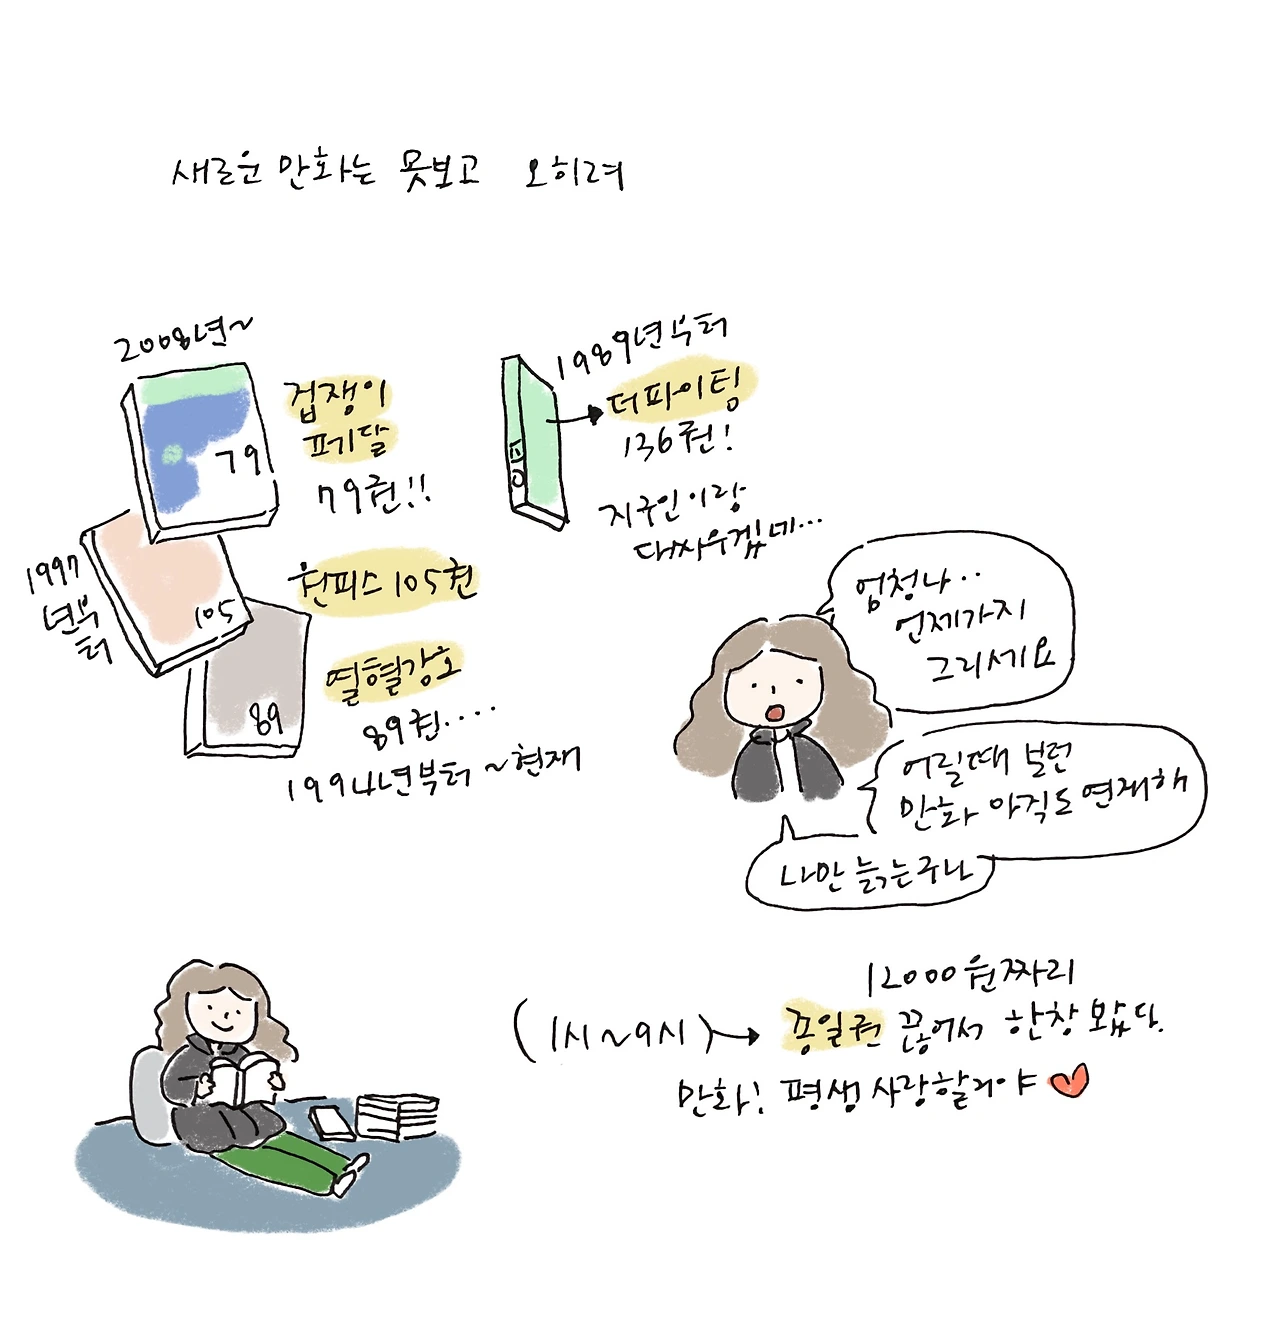 새로운 만화는 못보고 오히려
2008년~
79
겁쟁이
페달
79권!!
1997
년부
터
105
원피스 105권
89
열혈강호
89권....
1994년부터 ~현재
1989년부터
더파이팅
136권!
지구인이랑
다싸우겠네...
엄청나..
언제가지
그리세요
어릴때 보던
만화 아직도 연재해
나만 늙는구나
12000원짜리
(1시~9시) → 종일권 끊어서 한창 봤다.
만화! 평생 사랑할거야